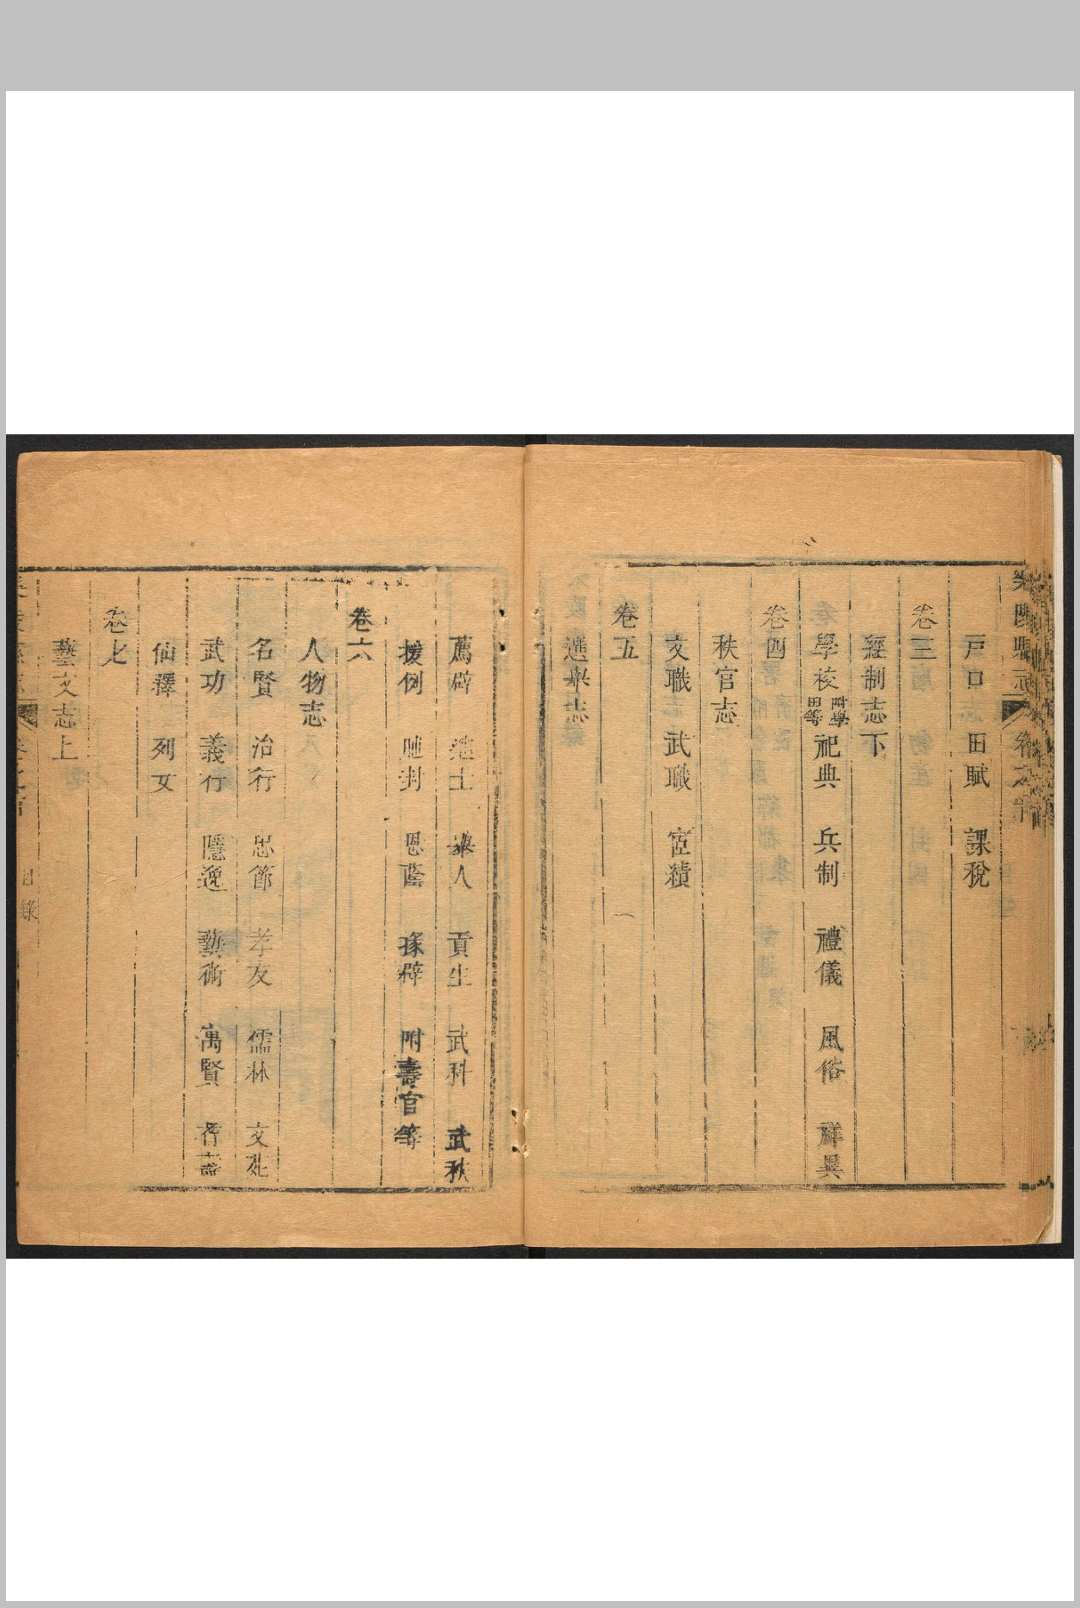 戸口 田賦 課稅
卷三
經制志下
學校 附學田等 祀典 兵制 禮儀 風俗 祥異
卷四
秩官志
文職 武職 宦績
卷五
選舉志
薦辟 進士 舉人 貢生 武科 武秩
援例 馳封 恩蔭 掾辟 附壽官等
卷六
人物志
名賢 治行 忠節 孝友 儒林 文苑
武功 義行 隱逸 藝術 寓賢 耆壽
仙釋 列女
卷七
藝文志上
目錄